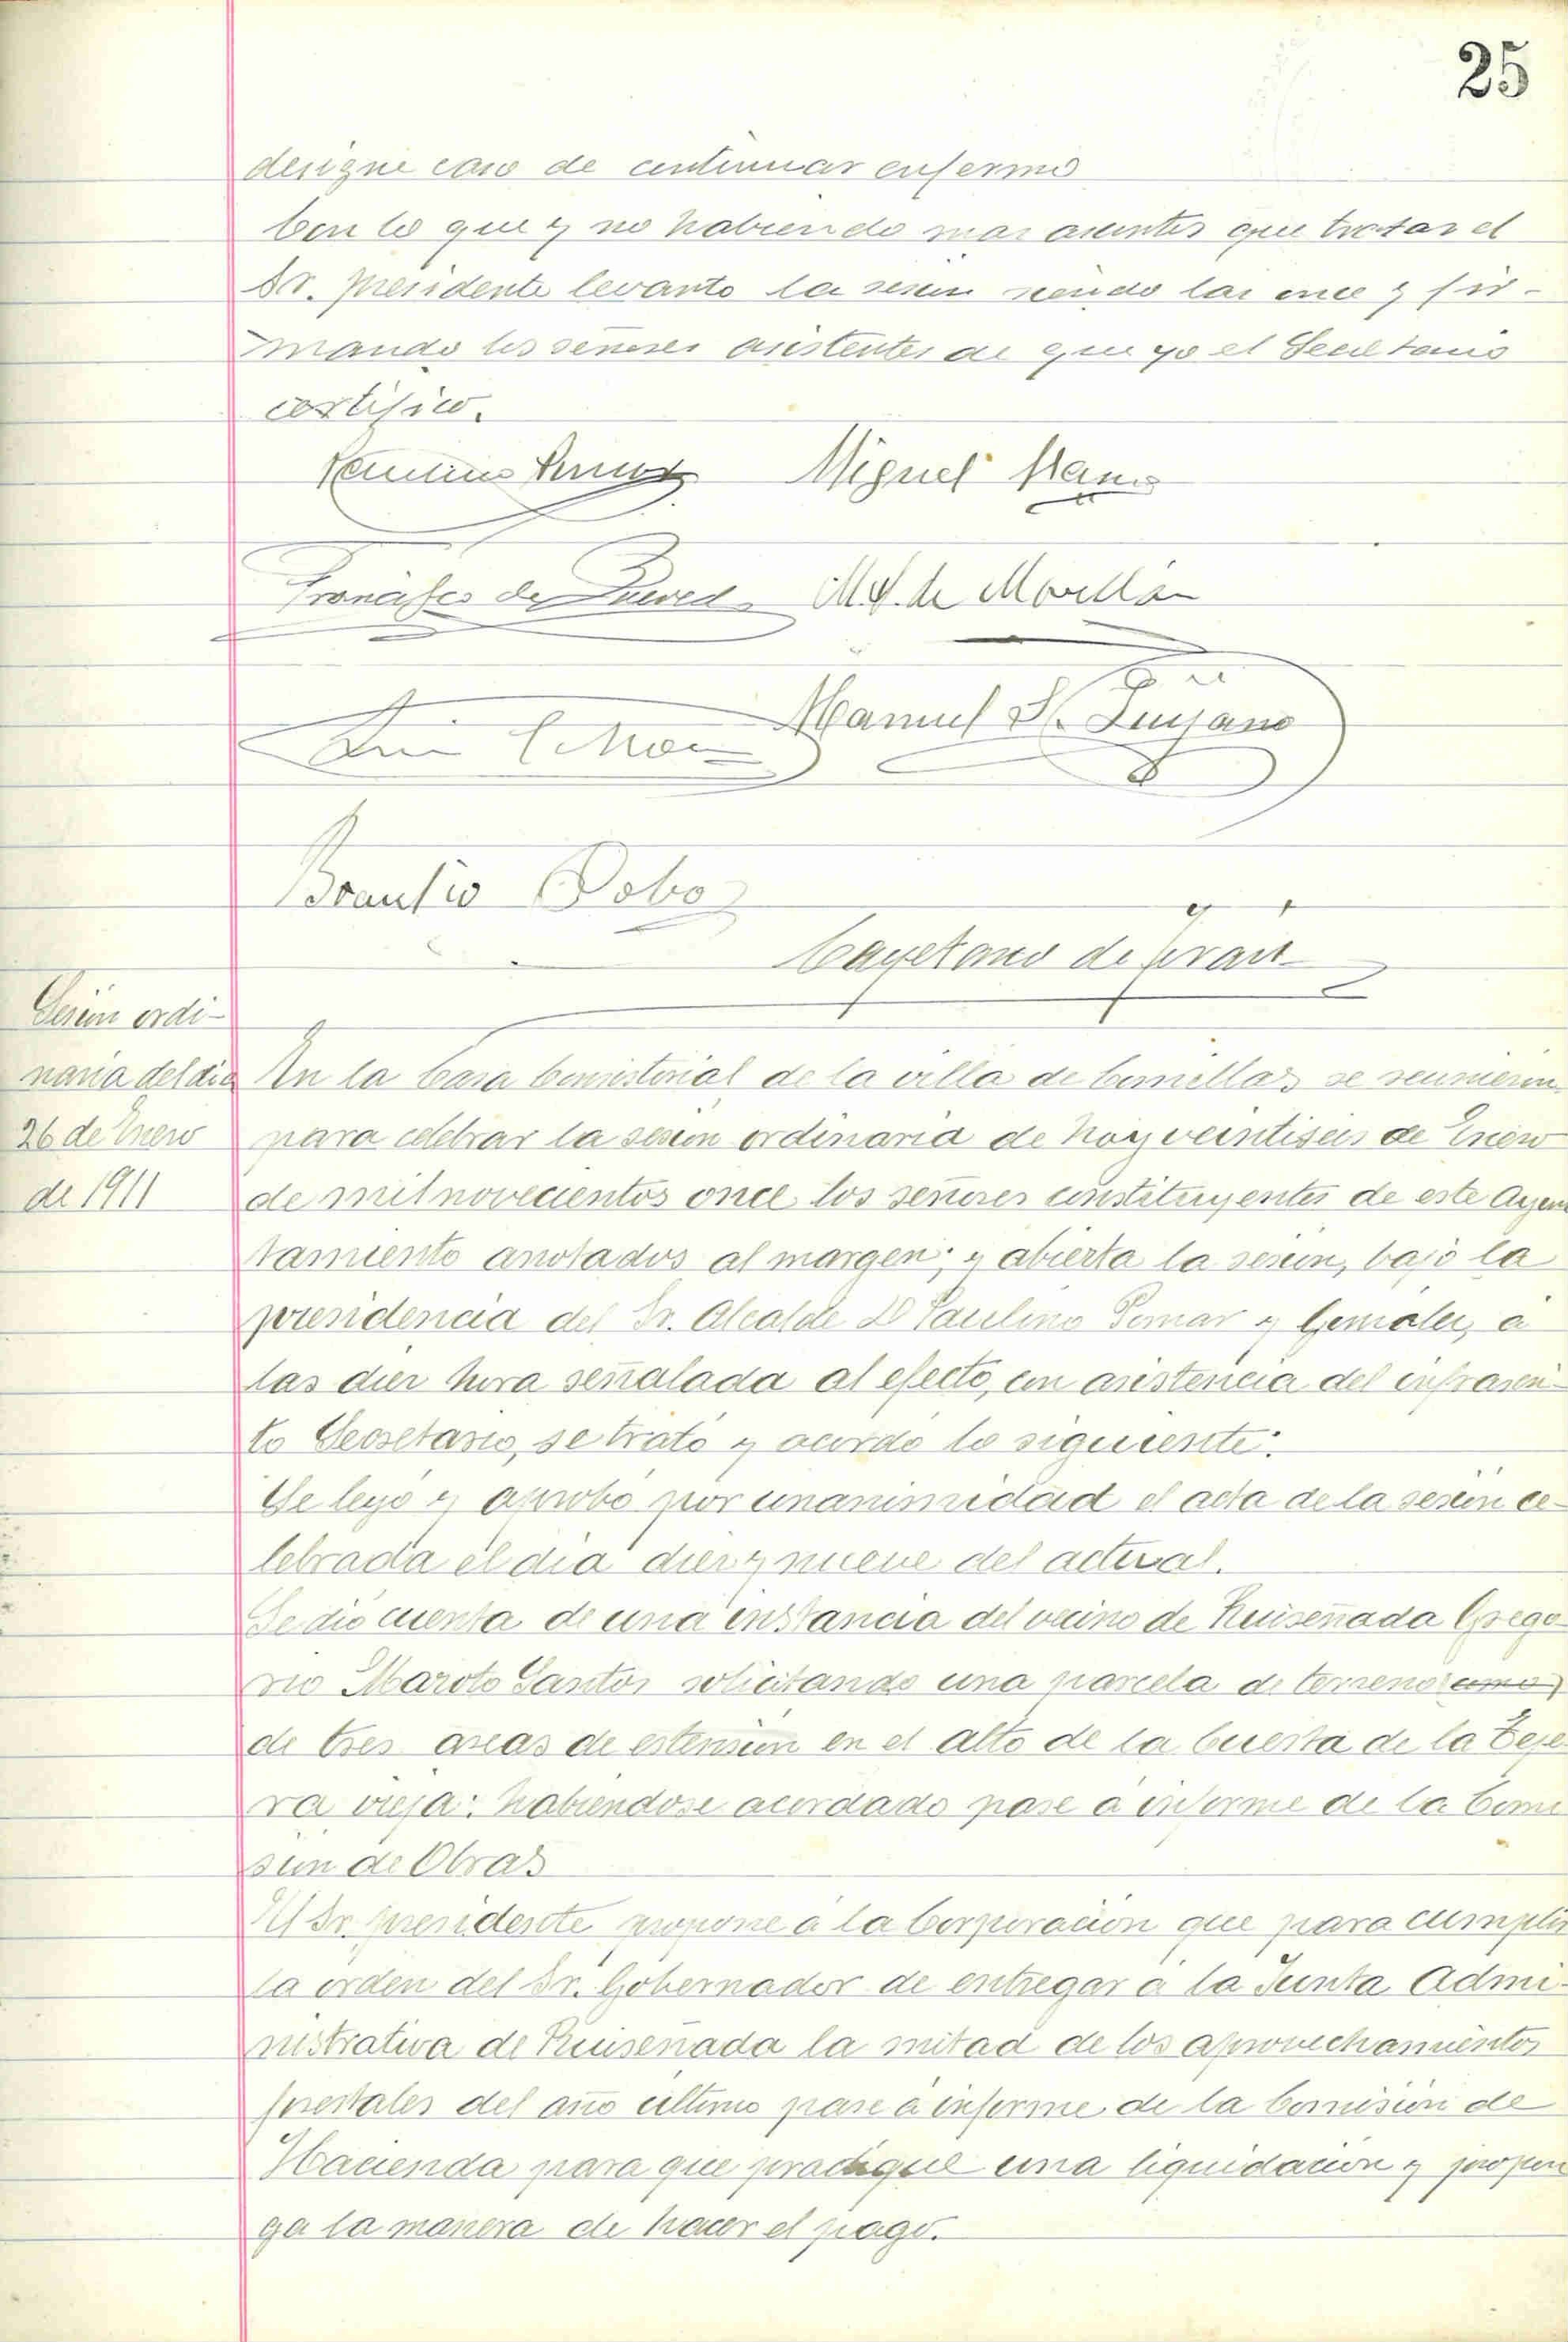 25
designe caso de continuar enfermo
Con lo que y no habiendo mas asuntos que tratar el
Sr. presidente levanto la sesion siendo las once y fir-
mando los señores asistentes de que yo el Secretario
certifico.
Miguel
de M. de Movellan
Manuel S. Quijano
Braulio Cobo
Cayetano de
Sesion ordi-
naria del dia
26 de Enero
de 1911
En la Casa Consistorial de la villa de Comillas se reunieron
para celebrar la sesion ordinaria de hoy veintiseis de Enero
de mil novecientos once los señores constituyentes de este Ayun
tamiento anotados al margen; y abierta la sesion, bajo la
presidencia del Sr. Alcalde D Paulino Pomar y Gonzalez, a
las diez hora señalada al efecto, con asistencia del infrascri-
to Secretario, se trató y acordó lo siguiente:
Se leyó y aprobó por unanimidad el acta de la sesion ce-
lebrada el dia diez y nueve del actual.
Se dió cuenta de una instancia del vecino de Ruiseñada Grego
rio Maroto Santos solicitando una parcela de terreno como
de tres areas de estension en el alto de la Cuesta de la Teje
ra vieja: habiendose acordado pase á informe de la Comi
sion de Obras
El Sr. presidente propone á la Corporación que para cumplir
la orden del Sr. Gobernador de entregar á la Junta Admi-
nistrativa de Ruiseñada la mitad de los aprovechamientos
forestales del año ultimo pase á informe de la Comisión de
Hacienda para que practique una liquidacion y propon
ga la manera de hacer el pago.